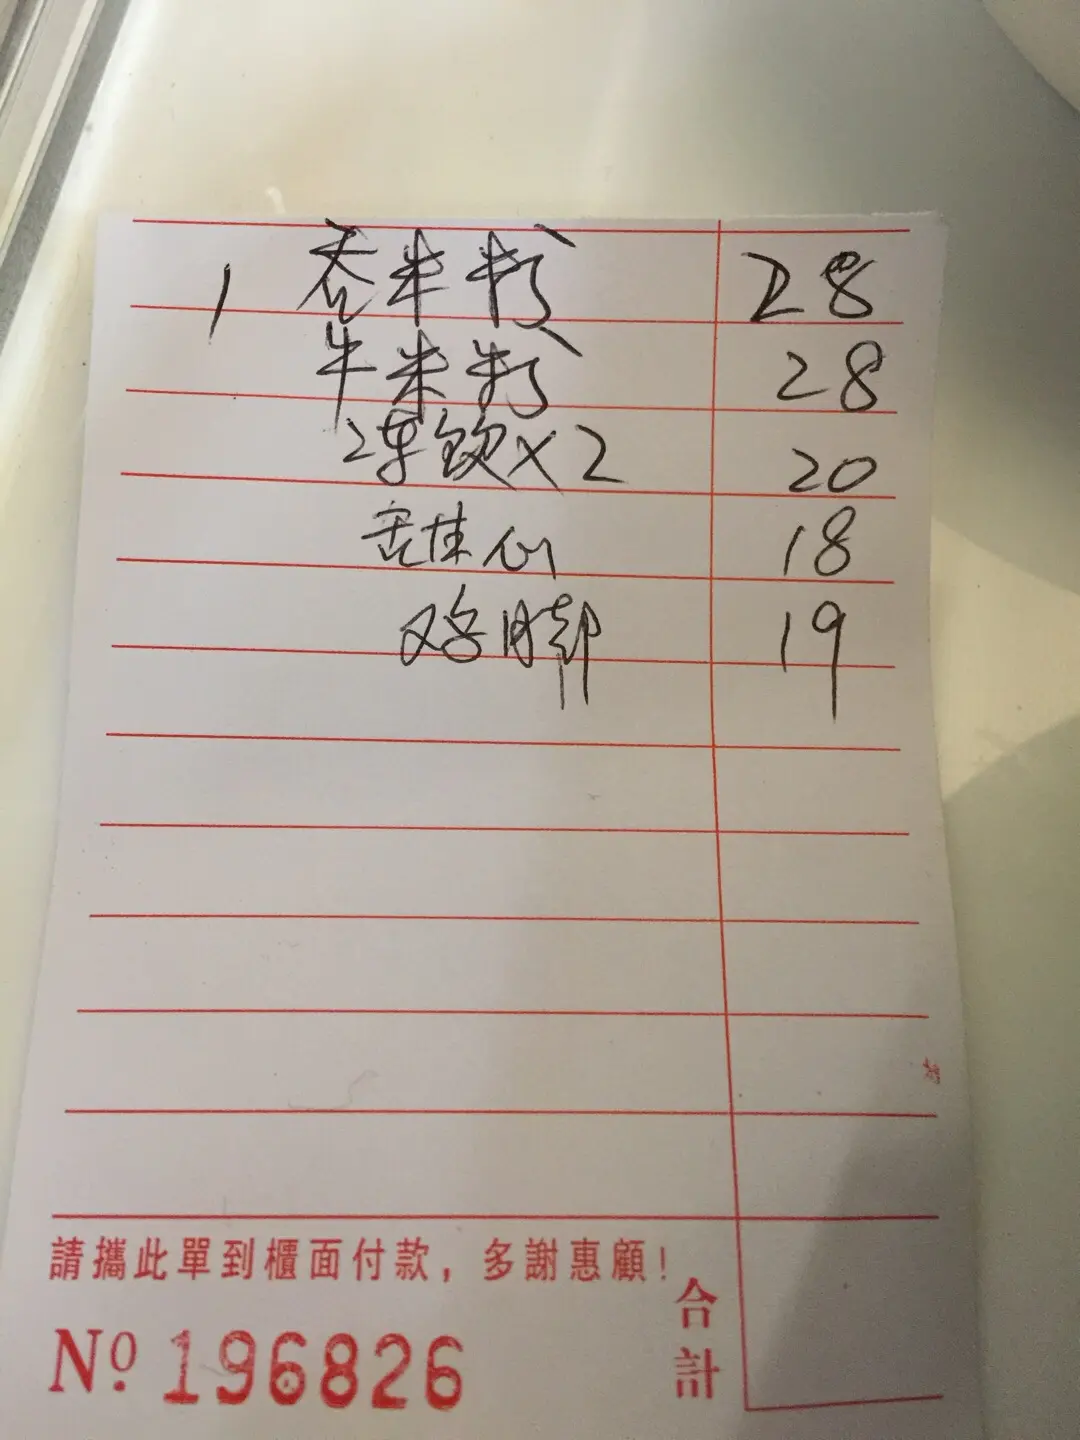 1 吞米粉 28
牛米粉 28
冻饮×2 20
18
鸡脚 19
請攜此單到櫃面付款，多謝惠顧！
合計
Nº 196826